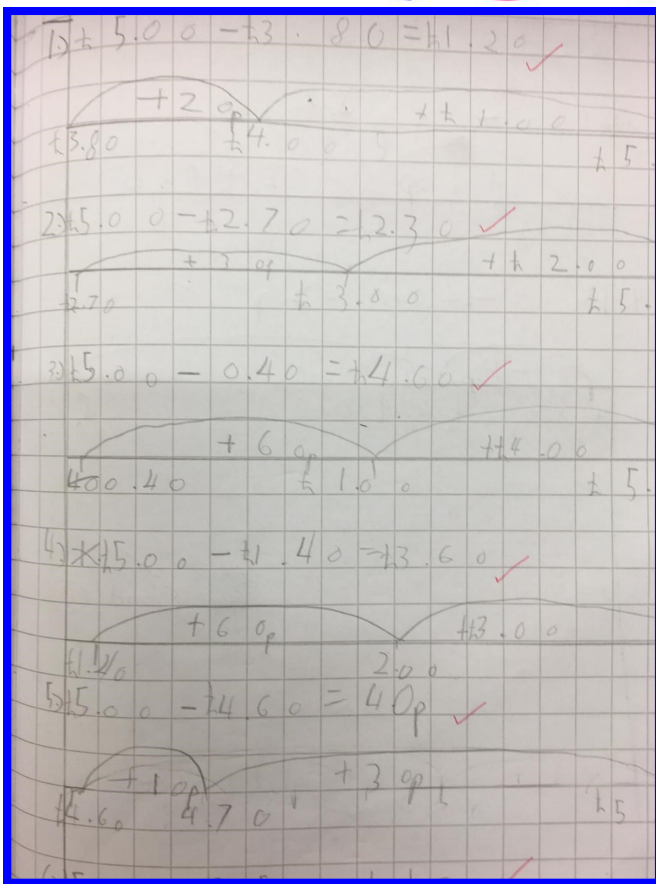 1.) £5.00 - £3.80 = £1.20
+20p +£1.00
£3.80 £4.00 £5.
2.) £5.00 - £2.70 = £2.30
+30p +£2.00
£2.70 £3.00 £5.
3.) £5.00 - 0.40 = £4.60
+60p +£4.00
0.40 £1.00 £5.
4.) £5.00 - £1.40 = £3.60
+60p +£3.00
£1.40 2.00
5.) £5.00 - £4.60 = 40p
+10p +30p
£4.60 4.70 £5